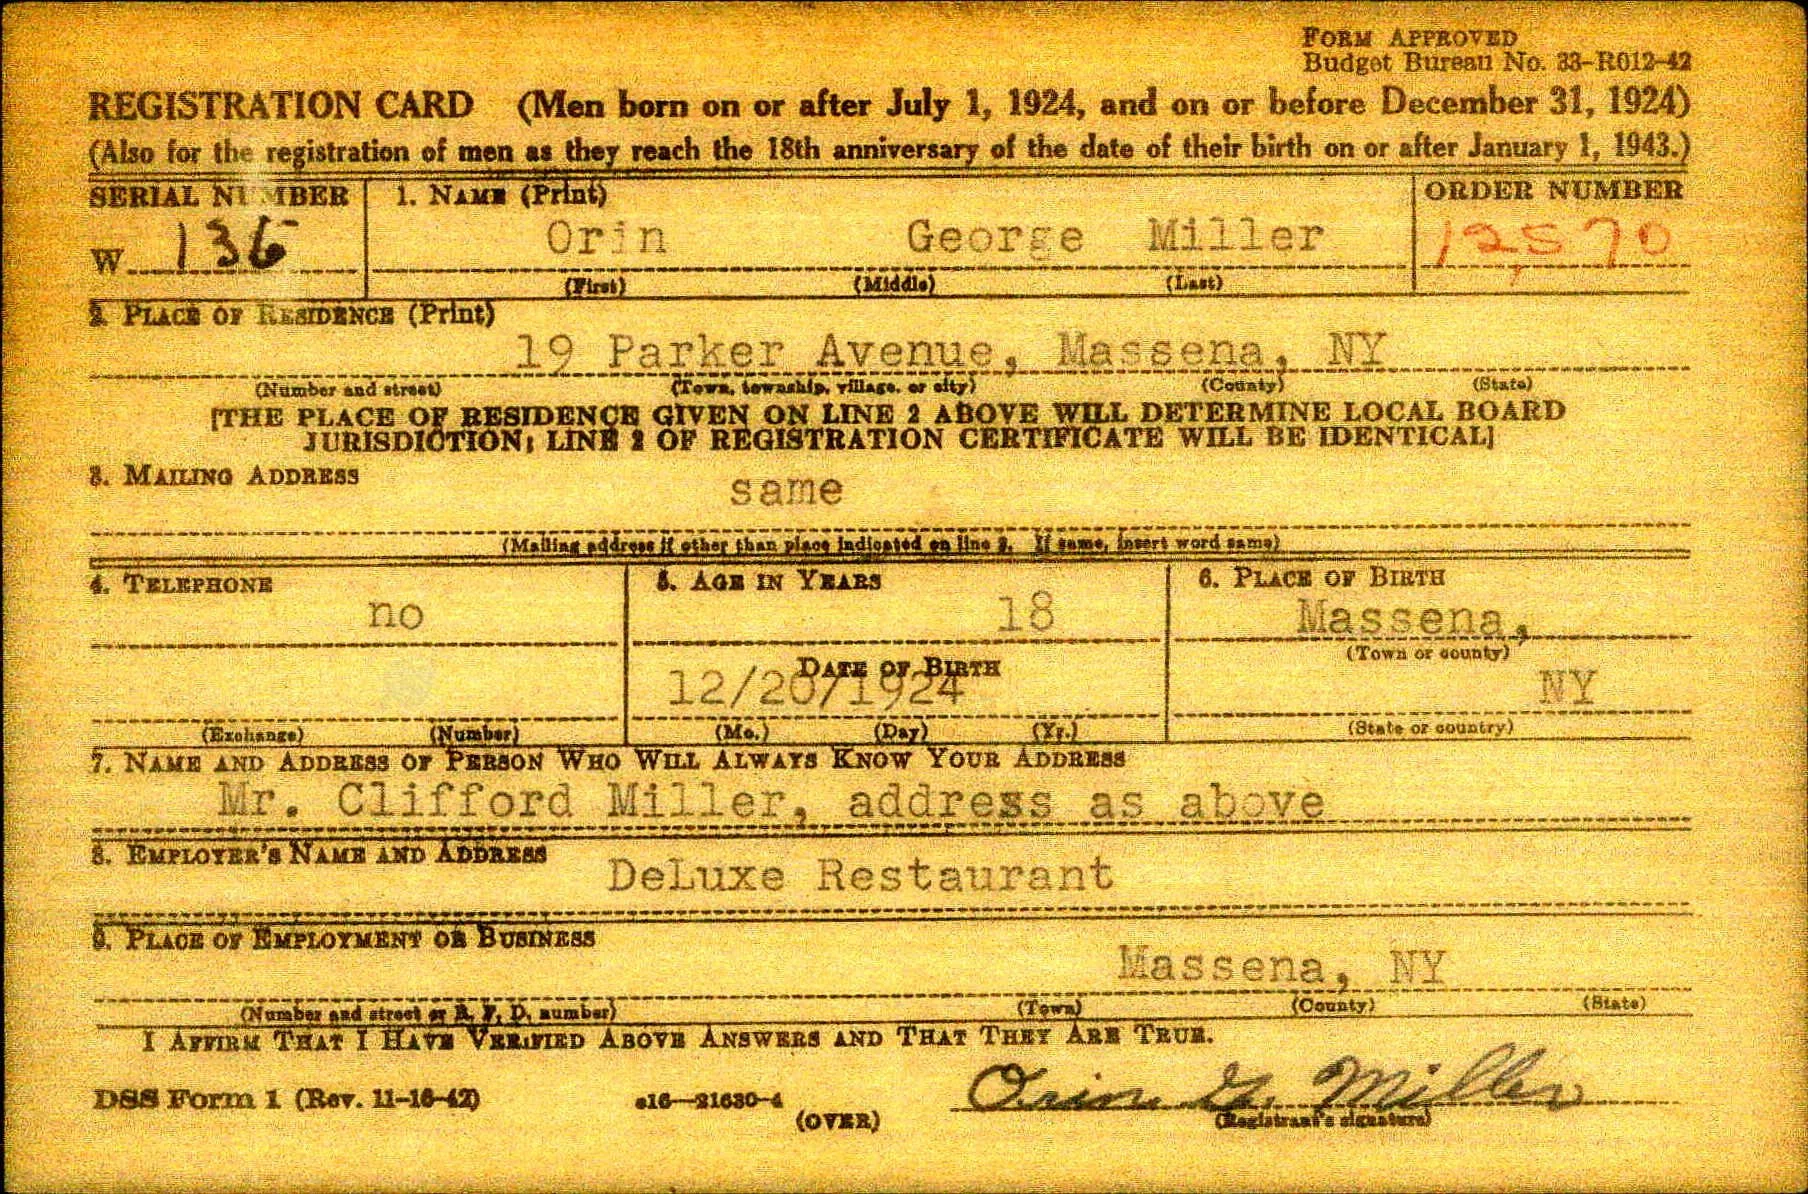 FORM APPROVED
Budget Bureau No. 33-R012-42
REGISTRATION CARD (Men born on or after July 1, 1924, and on or before December 31, 1924)
(Also for the registration of men as they reach the 18th anniversary of the date of their birth on or after January 1, 1943.)
SERIAL NUMBER 1. NAME (Print) ORDER NUMBER
W 136 Orin George Miller 12,570
(First) (Middle) (Last)
2. PLACE OF RESIDENCE (Print)
19 Parker Avenue, Massena, NY
(Number and street) (Town, township, village, or city) (County) (State)
[THE PLACE OF RESIDENCE GIVEN ON LINE 2 ABOVE WILL DETERMINE LOCAL BOARD
JURISDICTION; LINE 2 OF REGISTRATION CERTIFICATE WILL BE IDENTICAL]
3. MAILING ADDRESS
same
(Mailing address if other than place indicated on line 2. If same, insert word same)
4. TELEPHONE 5. AGE IN YEARS 6. PLACE OF BIRTH
no 18 Massena,
(Town or county)
DATE OF BIRTH
12/20/1924 NY
(Exchange) (Number) (Mo.) (Day) (Yr.) (State or country)
7. NAME AND ADDRESS OF PERSON WHO WILL ALWAYS KNOW YOUR ADDRESS
Mr. Clifford Miller, address as above
8. EMPLOYER'S NAME AND ADDRESS
DeLuxe Restaurant
9. PLACE OF EMPLOYMENT OR BUSINESS
Massena, NY
(Number and street or R. F. D. number) (Town) (County) (State)
I AFFIRM THAT I HAVE VERIFIED ABOVE ANSWERS AND THAT THEY ARE TRUE.
DSS Form 1 (Rev. 11-16-42) 16—21630-4 Orin G. Miller
(OVER) (Registrant's signature)